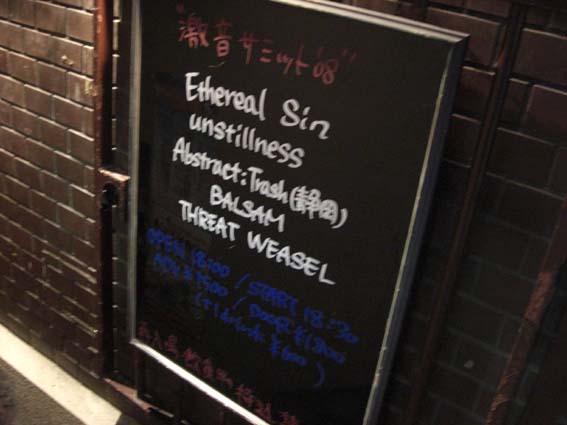 "激音サミット'08"
Ethereal Sin
unstillness
Abstract:Trash(静岡)
BALSAM
THREAT WEASEL
OPEN 18:00 / START 18:30
ADV ¥1500 / DOOR ¥1800
(+1drink ¥600)